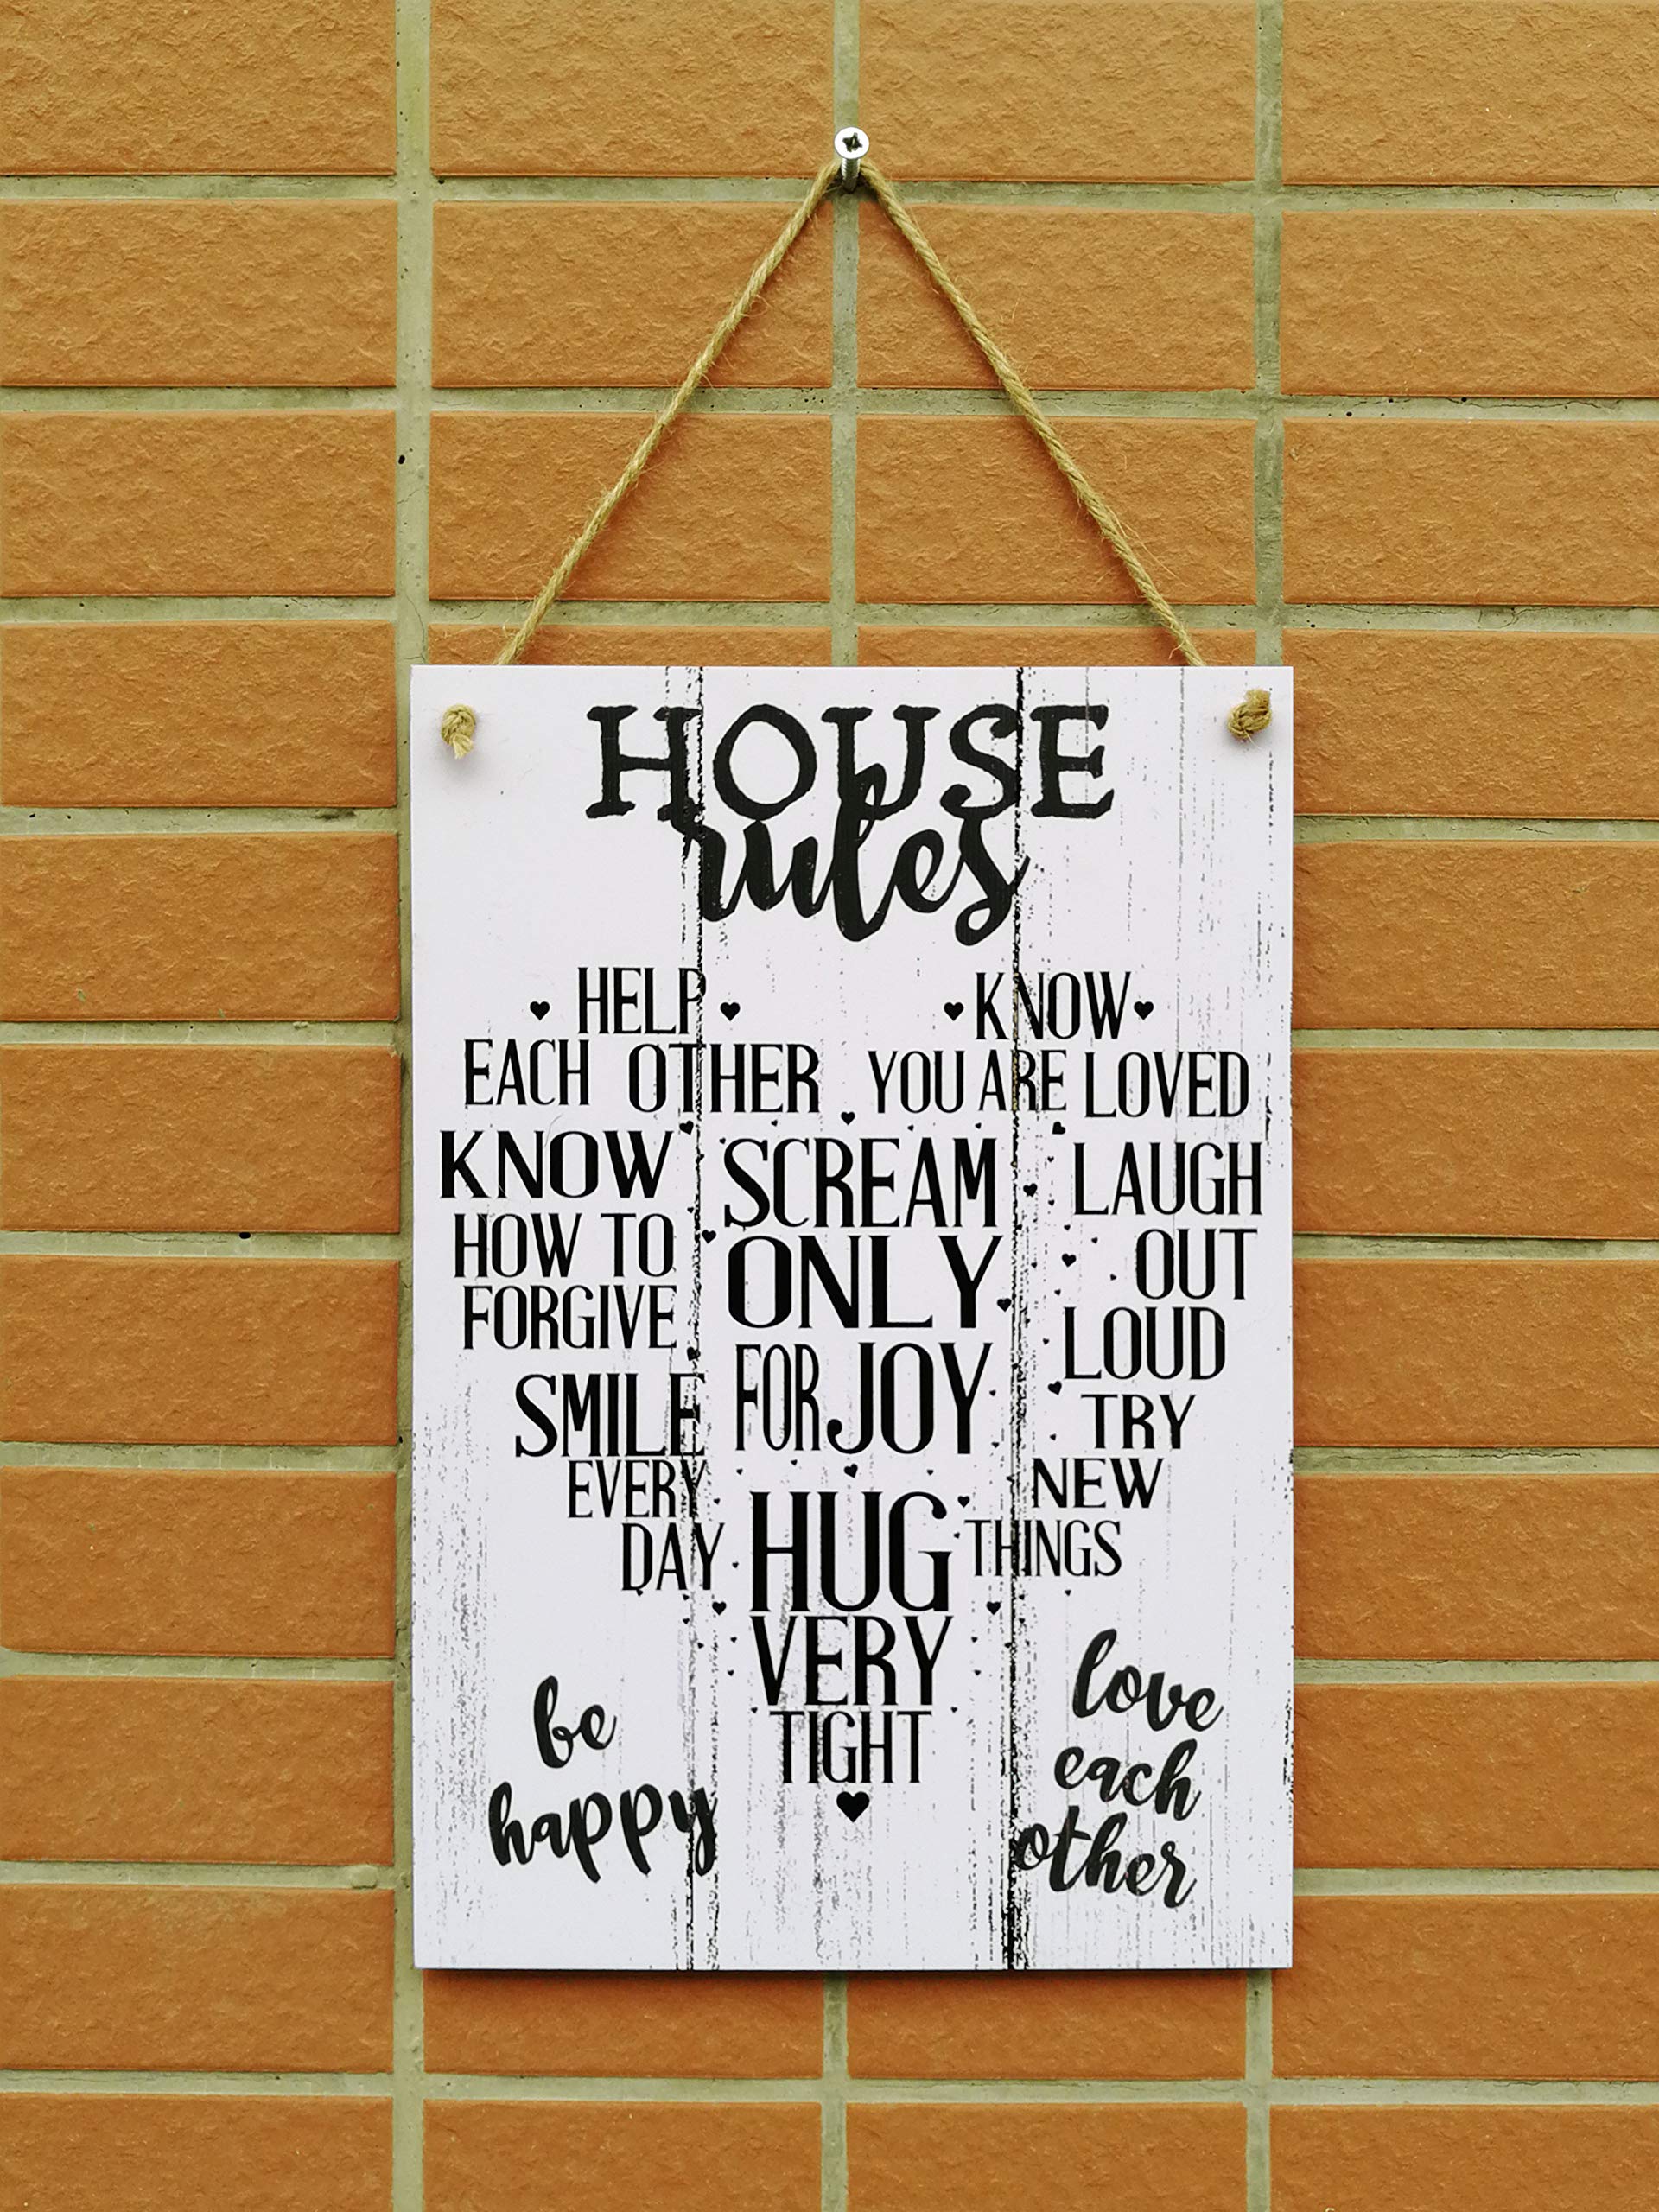 HOUSE
rules
HELP
EACH OTHER
KNOW
YOU ARE LOVED
KNOW
HOW TO
FORGIVE
SCREAM
ONLY
FOR JOY
LAUGH
OUT
LOUD
SMILE
EVERY
DAY
TRY
NEW
THINGS
HUG
VERY
TIGHT
be
happy
love
each
other